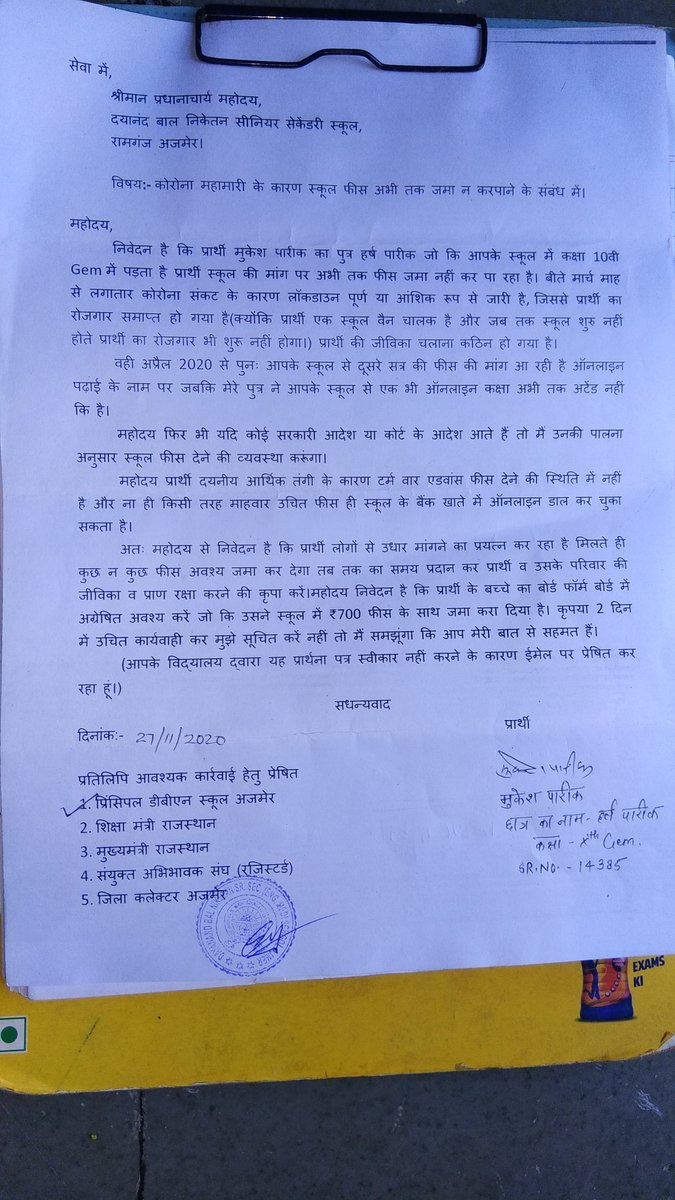 सेवा में,
श्रीमान प्रधानाचार्य महोदय,
दयानंद बाल निकेतन सीनियर सेकेंडरी स्कूल,
रामगंज अजमेर।
विषय:- कोरोना महामारी के कारण स्कूल फीस अभी तक जमा न करपाने के संबंध में।
महोदय,
निवेदन है कि प्रार्थी मुकेश पारीक का पुत्र हर्ष पारीक जो कि आपके स्कूल में कक्षा 10वी
Gem में पड़ता है प्रार्थी स्कूल की मांग पर अभी तक फीस जमा नहीं कर पा रहा है। बीते मार्च माह
से लगातार कोरोना संकट के कारण लॉकडाउन पूर्ण या आंशिक रूप से जारी है, जिससे प्रार्थी का
रोजगार समाप्त हो गया है(क्योंकि प्रार्थी एक स्कूल वैन चालक है और जब तक स्कूल शुरु नहीं
होते प्रार्थी का रोजगार भी शुरू नहीं होगा।) प्रार्थी की जीविका चलाना कठिन हो गया है।
वही अप्रैल 2020 से पुनः आपके स्कूल से दूसरे सत्र की फीस की मांग आ रही है ऑनलाइन
पढ़ाई के नाम पर जबकि मेरे पुत्र ने आपके स्कूल से एक भी ऑनलाइन कक्षा अभी तक अटेंड नहीं
कि है।
महोदय फिर भी यदि कोई सरकारी आदेश या कोर्ट के आदेश आते हैं तो मैं उनकी पालना
अनुसार स्कूल फीस देने की व्यवस्था करूंगा।
महोदय प्रार्थी दयनीय आर्थिक तंगी के कारण टर्म वार एडवांस फीस देने की स्थिति में नहीं
है और ना ही किसी तरह माहवार उचित फीस ही स्कूल के बैंक खाते में ऑनलाइन डाल कर चुका
सकता है।
अतः महोदय से निवेदन है कि प्रार्थी लोगों से उधार मांगने का प्रयत्न कर रहा है मिलते ही
कुछ न कुछ फीस अवश्य जमा कर देगा तब तक का समय प्रदान कर प्रार्थी व उसके परिवार की
जीविका व प्राण रक्षा करने की कृपा करें।महोदय निवेदन है कि प्रार्थी के बच्चे का बोर्ड फॉर्म बोर्ड में
अग्रेषित अवश्य करें जो कि उसने स्कूल में ₹700 फीस के साथ जमा करा दिया है। कृपया 2 दिन
में उचित कार्यवाही कर मुझे सूचित करें नहीं तो मैं समझूंगा कि आप मेरी बात से सहमत हैं।
(आपके विद्यालय द्वारा यह प्रार्थना पत्र स्वीकार नहीं करने के कारण ईमेल पर प्रेषित कर
रहा हूं।)
सधन्यवाद
दिनांक:- 27/11/2020
प्रार्थी
प्रतिलिपि आवश्यक कार्रवाई हेतु प्रेषित
1. प्रिंसिपल डीबीएन स्कूल अजमेर
2. शिक्षा मंत्री राजस्थान
3. मुख्यमंत्री राजस्थान
4. संयुक्त अभिभावक संघ (रजिस्टर्ड)
5. जिला कलेक्टर अजमेर
मुकेश पारीक
छात्र का नाम - हर्ष पारीक
कक्षा - Xth Gem.
SR.NO. - 14385
EXAMS
KI